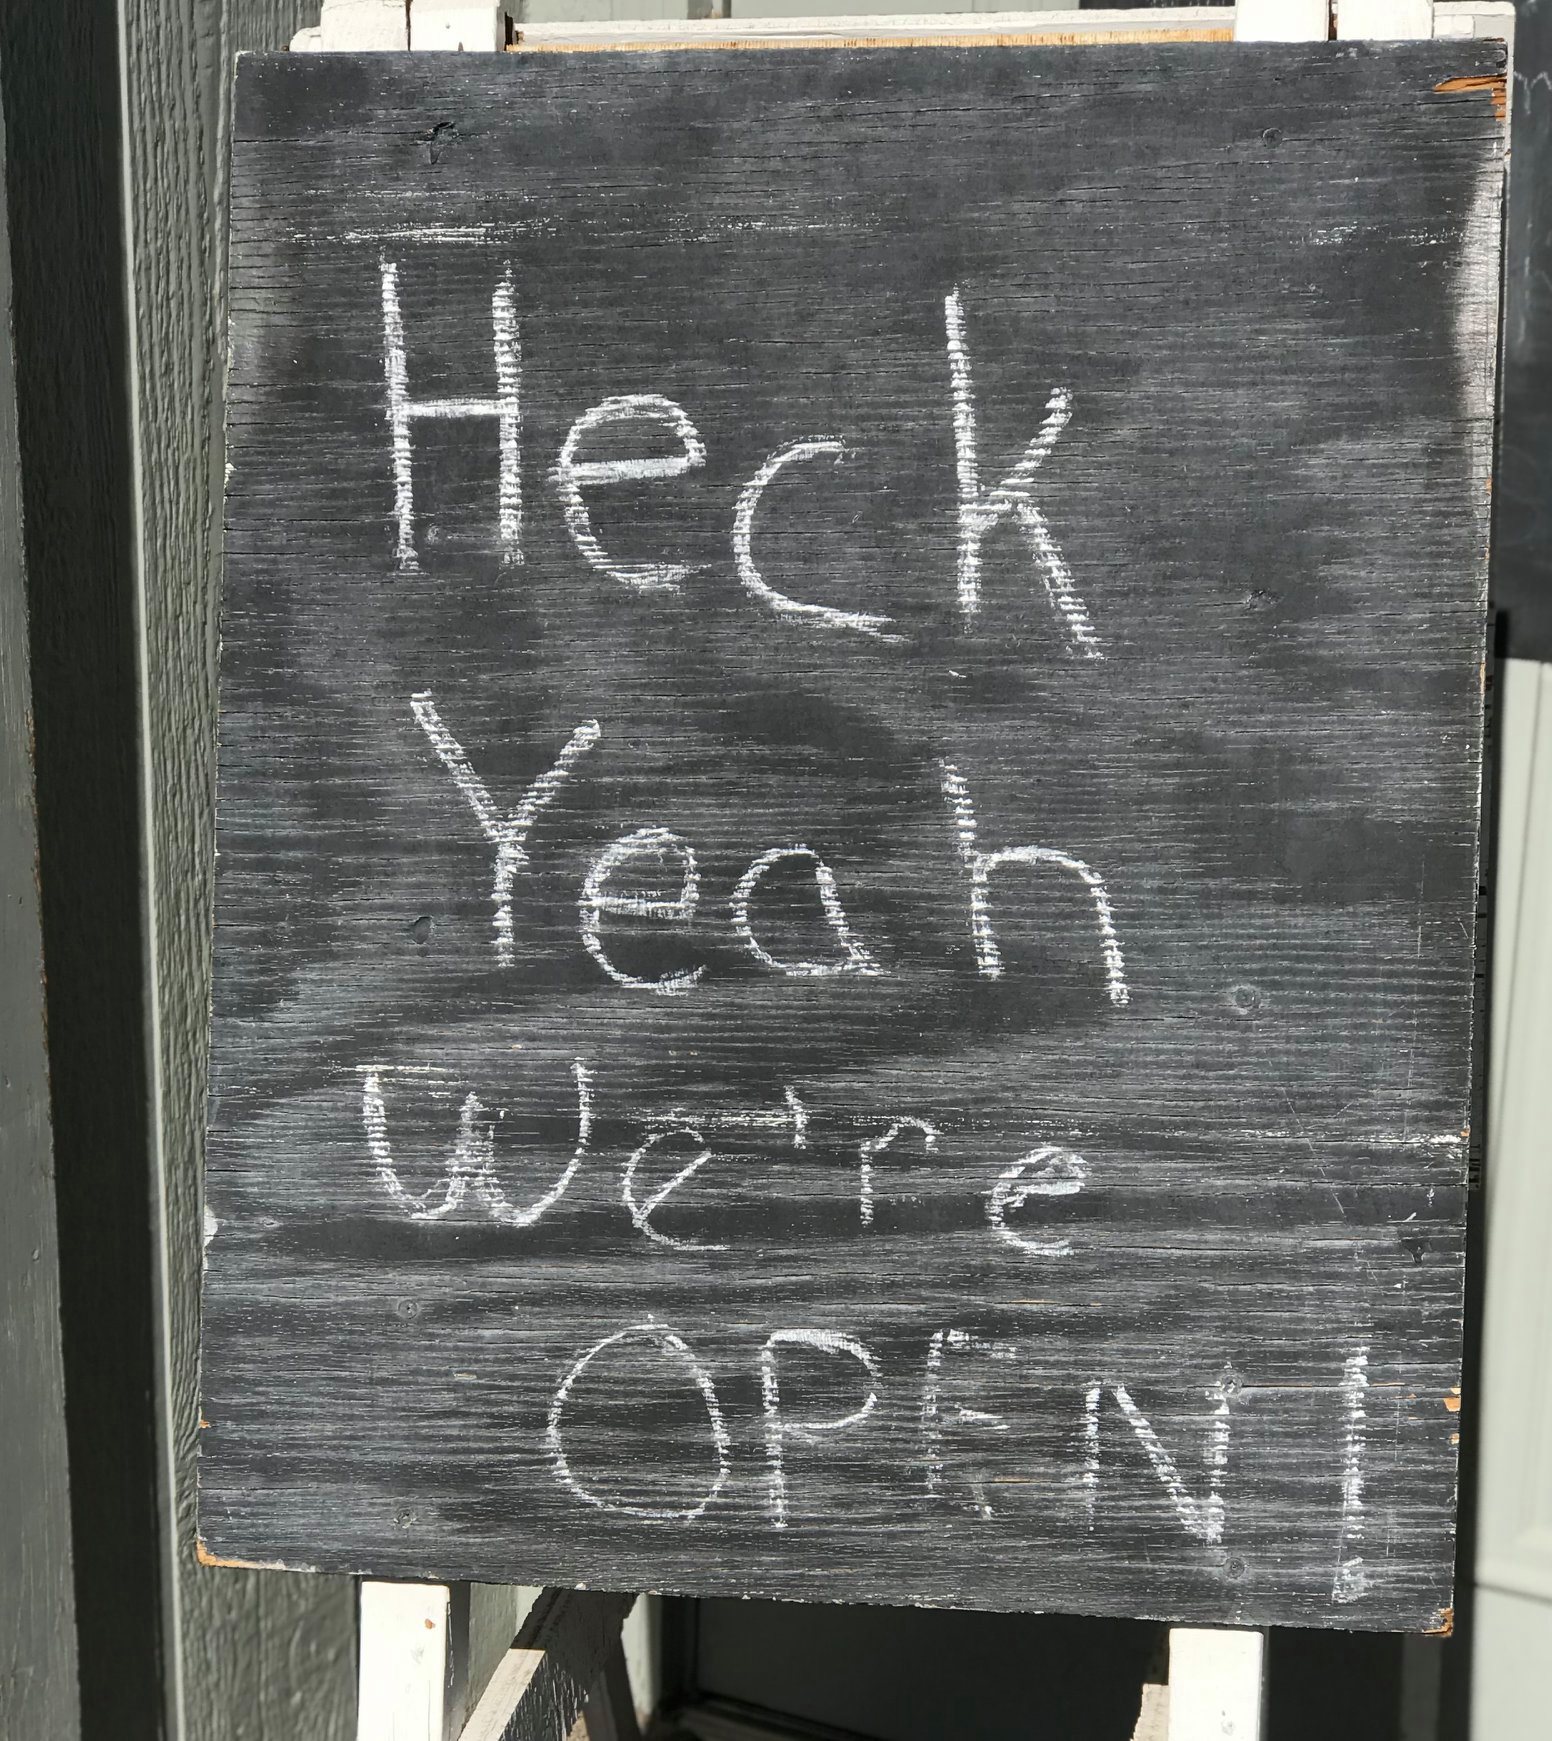 Heck
Yeah
We're
OPEN!